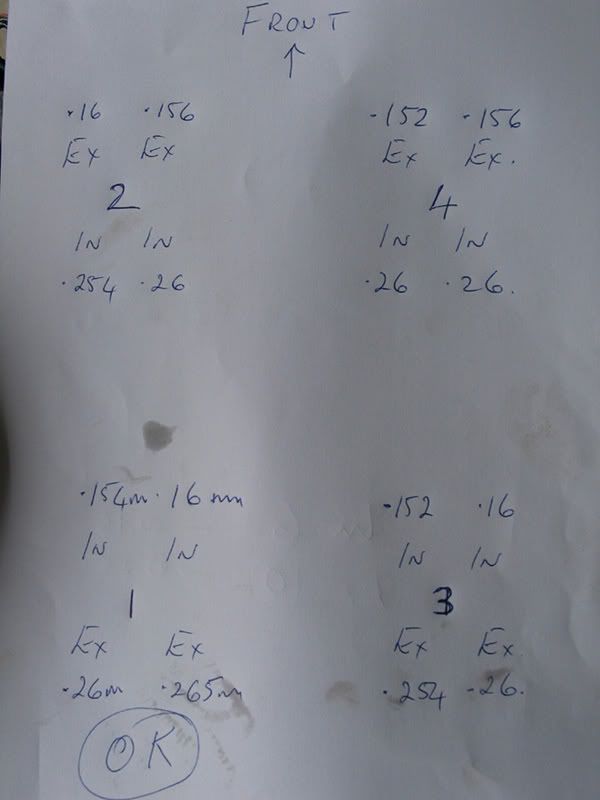 FRONT
↑
.16 .156 .152 .156
Ex Ex Ex Ex.
2 4
IN IN IN IN
.254 .26 .26 .26.
.154m .16mm .152 .16
IN IN IN IN
1 3
Ex Ex Ex Ex.
.26m .265m .254 .26.
OK